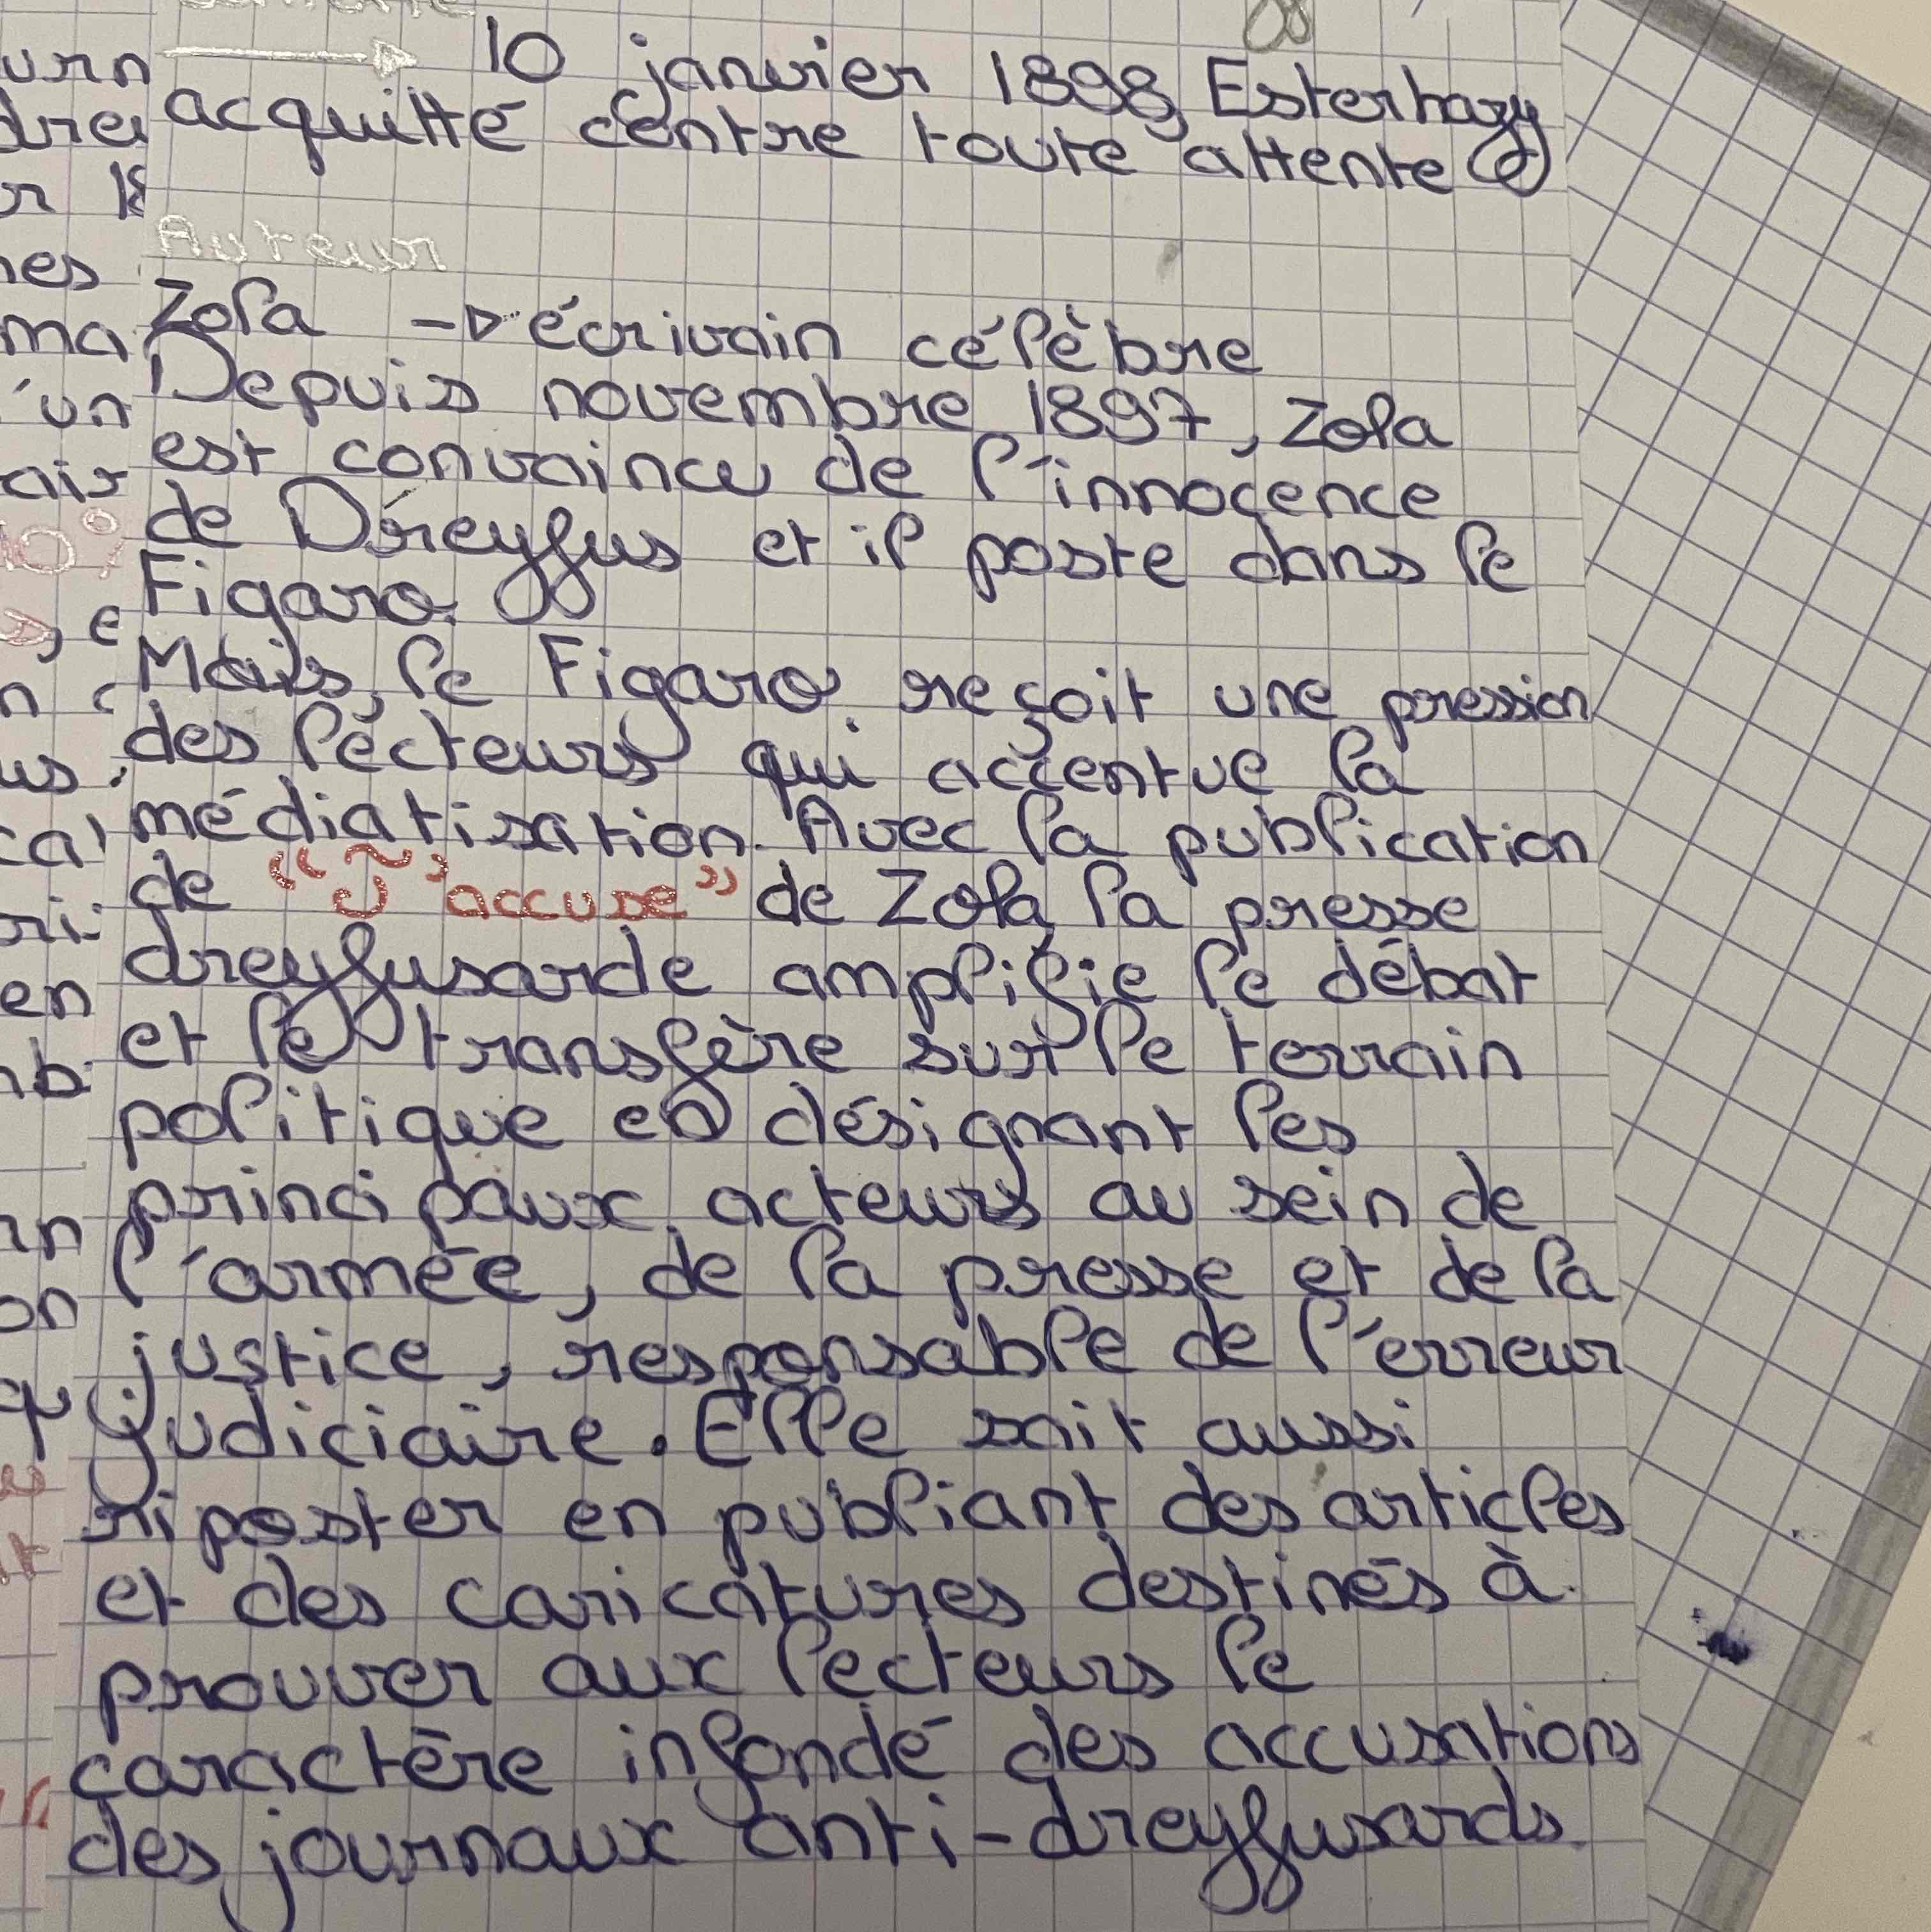 10 janvier 1898, Esterhazy
acquitté contre toute attente
Auteur
Zola → écrivain célèbre
Depuis novembre 1897, Zola
est convaincu de l'innocence
de Dreyfus et il poste dans le
Figaro.
Mais, le Figaro reçoit une pression
des lecteurs qui accentue la
médiatisation. Avec la publication
de "J'accuse" de Zola, la presse
dreyfusarde amplifie le débat
et le transfère sur le terrain
politique en désignant les
principaux acteurs au sein de
l'armée, de la presse et de la
justice, responsable de l'erreur
judiciaire. Elle sait aussi
riposter en publiant des articles
et des caricatures destinés à
prouver aux lecteurs le
caractère infondé des accusations
des journaux anti-dreyfusards